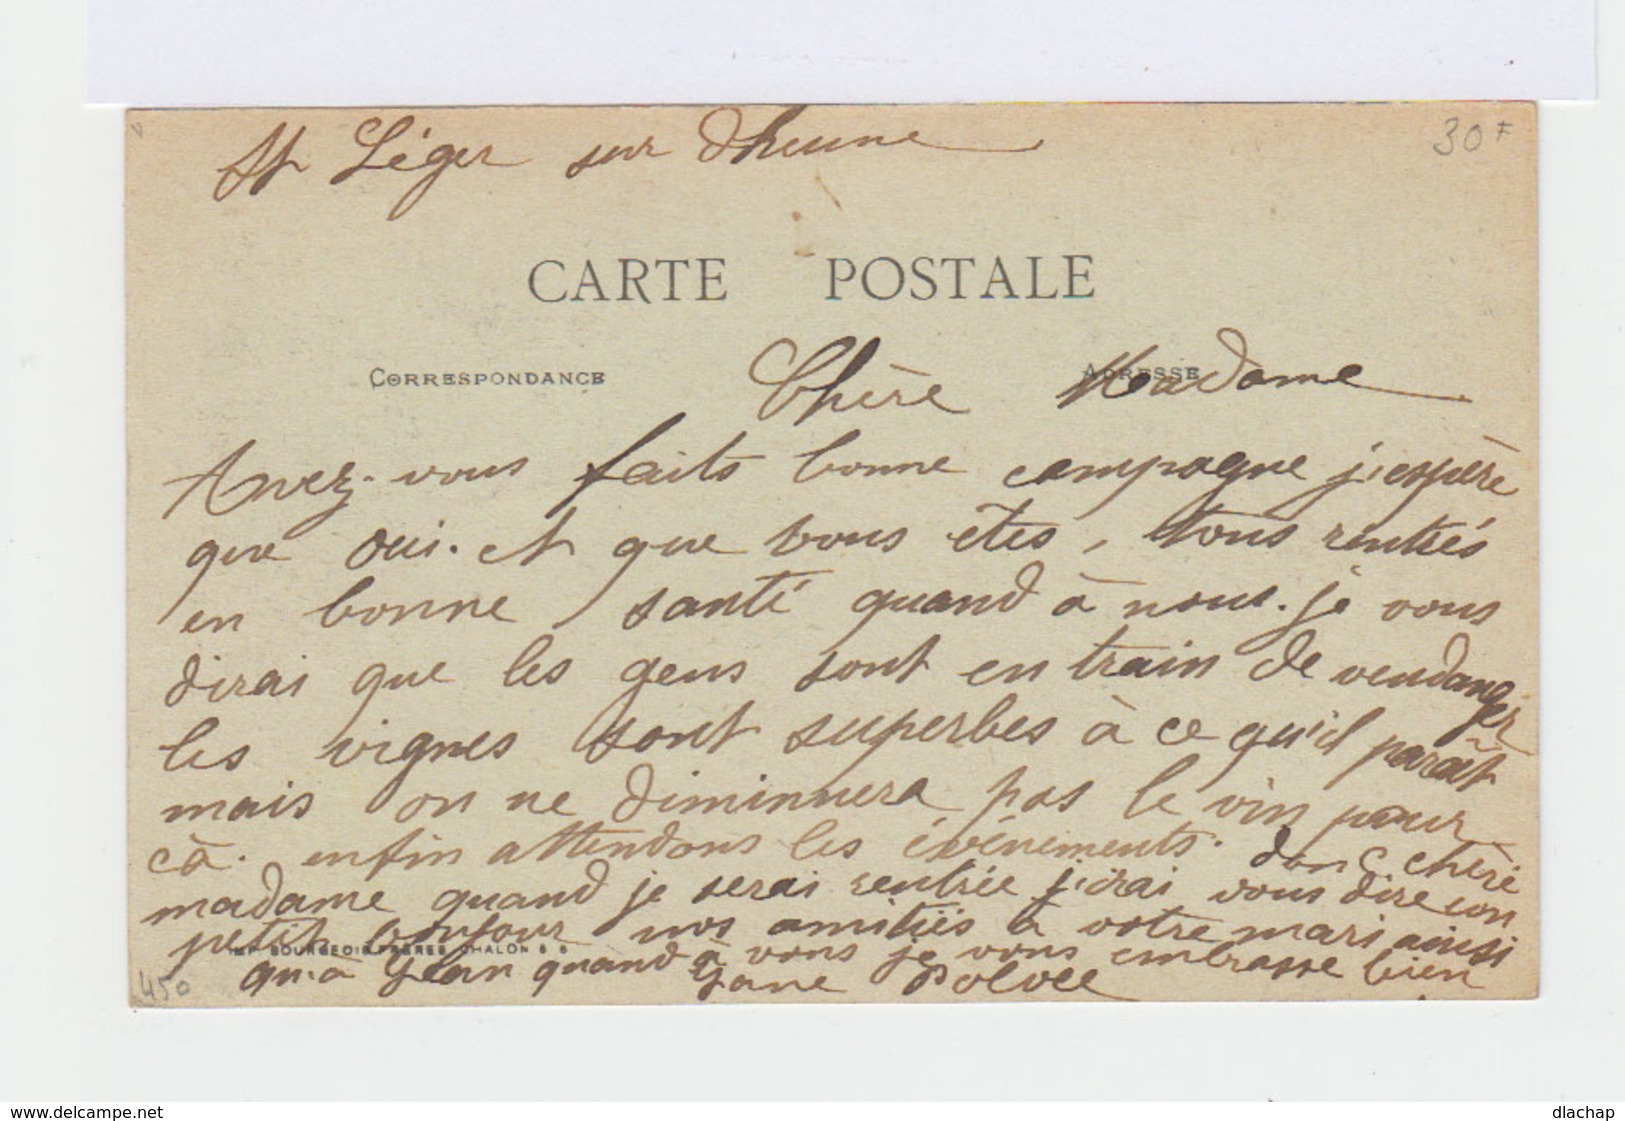 St Léger sur Dheune
30 F
CARTE POSTALE
CORRESPONDANCE
ADRESSE
Chère Madame
Avez-vous faits bonne campagne j'espère
que oui. et que vous êtes, tous rentrés
en bonne santé quand à nous. je vous
dirai que les gens sont en train de vendanger
les vignes sont superbes à ce qu'il paraît
mais on ne diminuera pas le vin pour
cà. enfin attendons les événements. donc chère
madame quand je serai rentrée j'irai vous dire un
petit bonjour nos amitiés à votre mari ainsi
IMP. BOURGEOIS FRÈRES CHALON S S
qu'à Jean quand à vous je vous embrasse bien
Jane
450
www.delcampe.net
dlachap